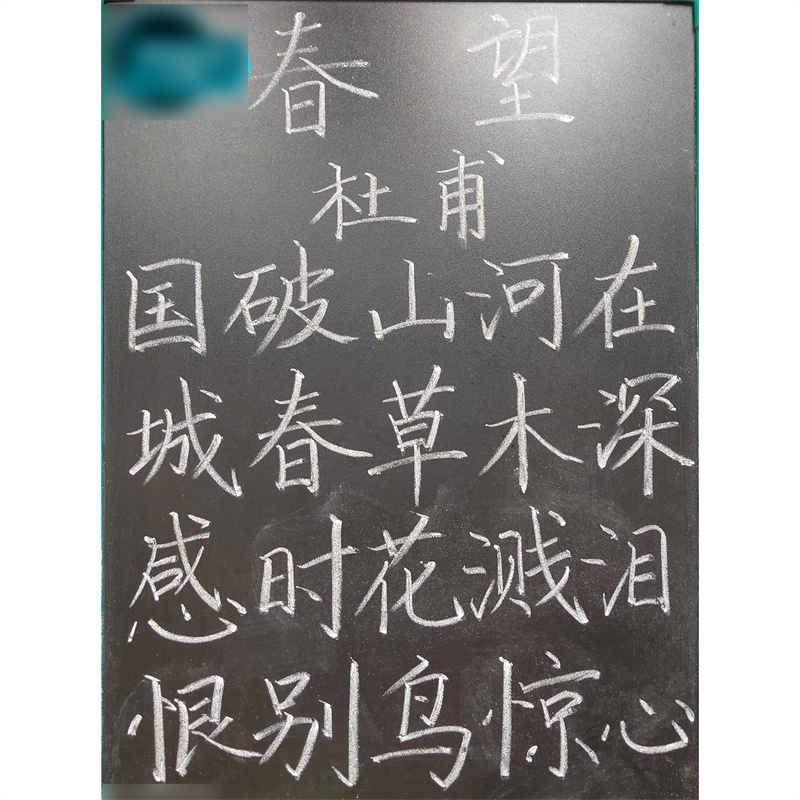 春望
杜甫
国破山河在
城春草木深
感时花溅泪
恨别鸟惊心